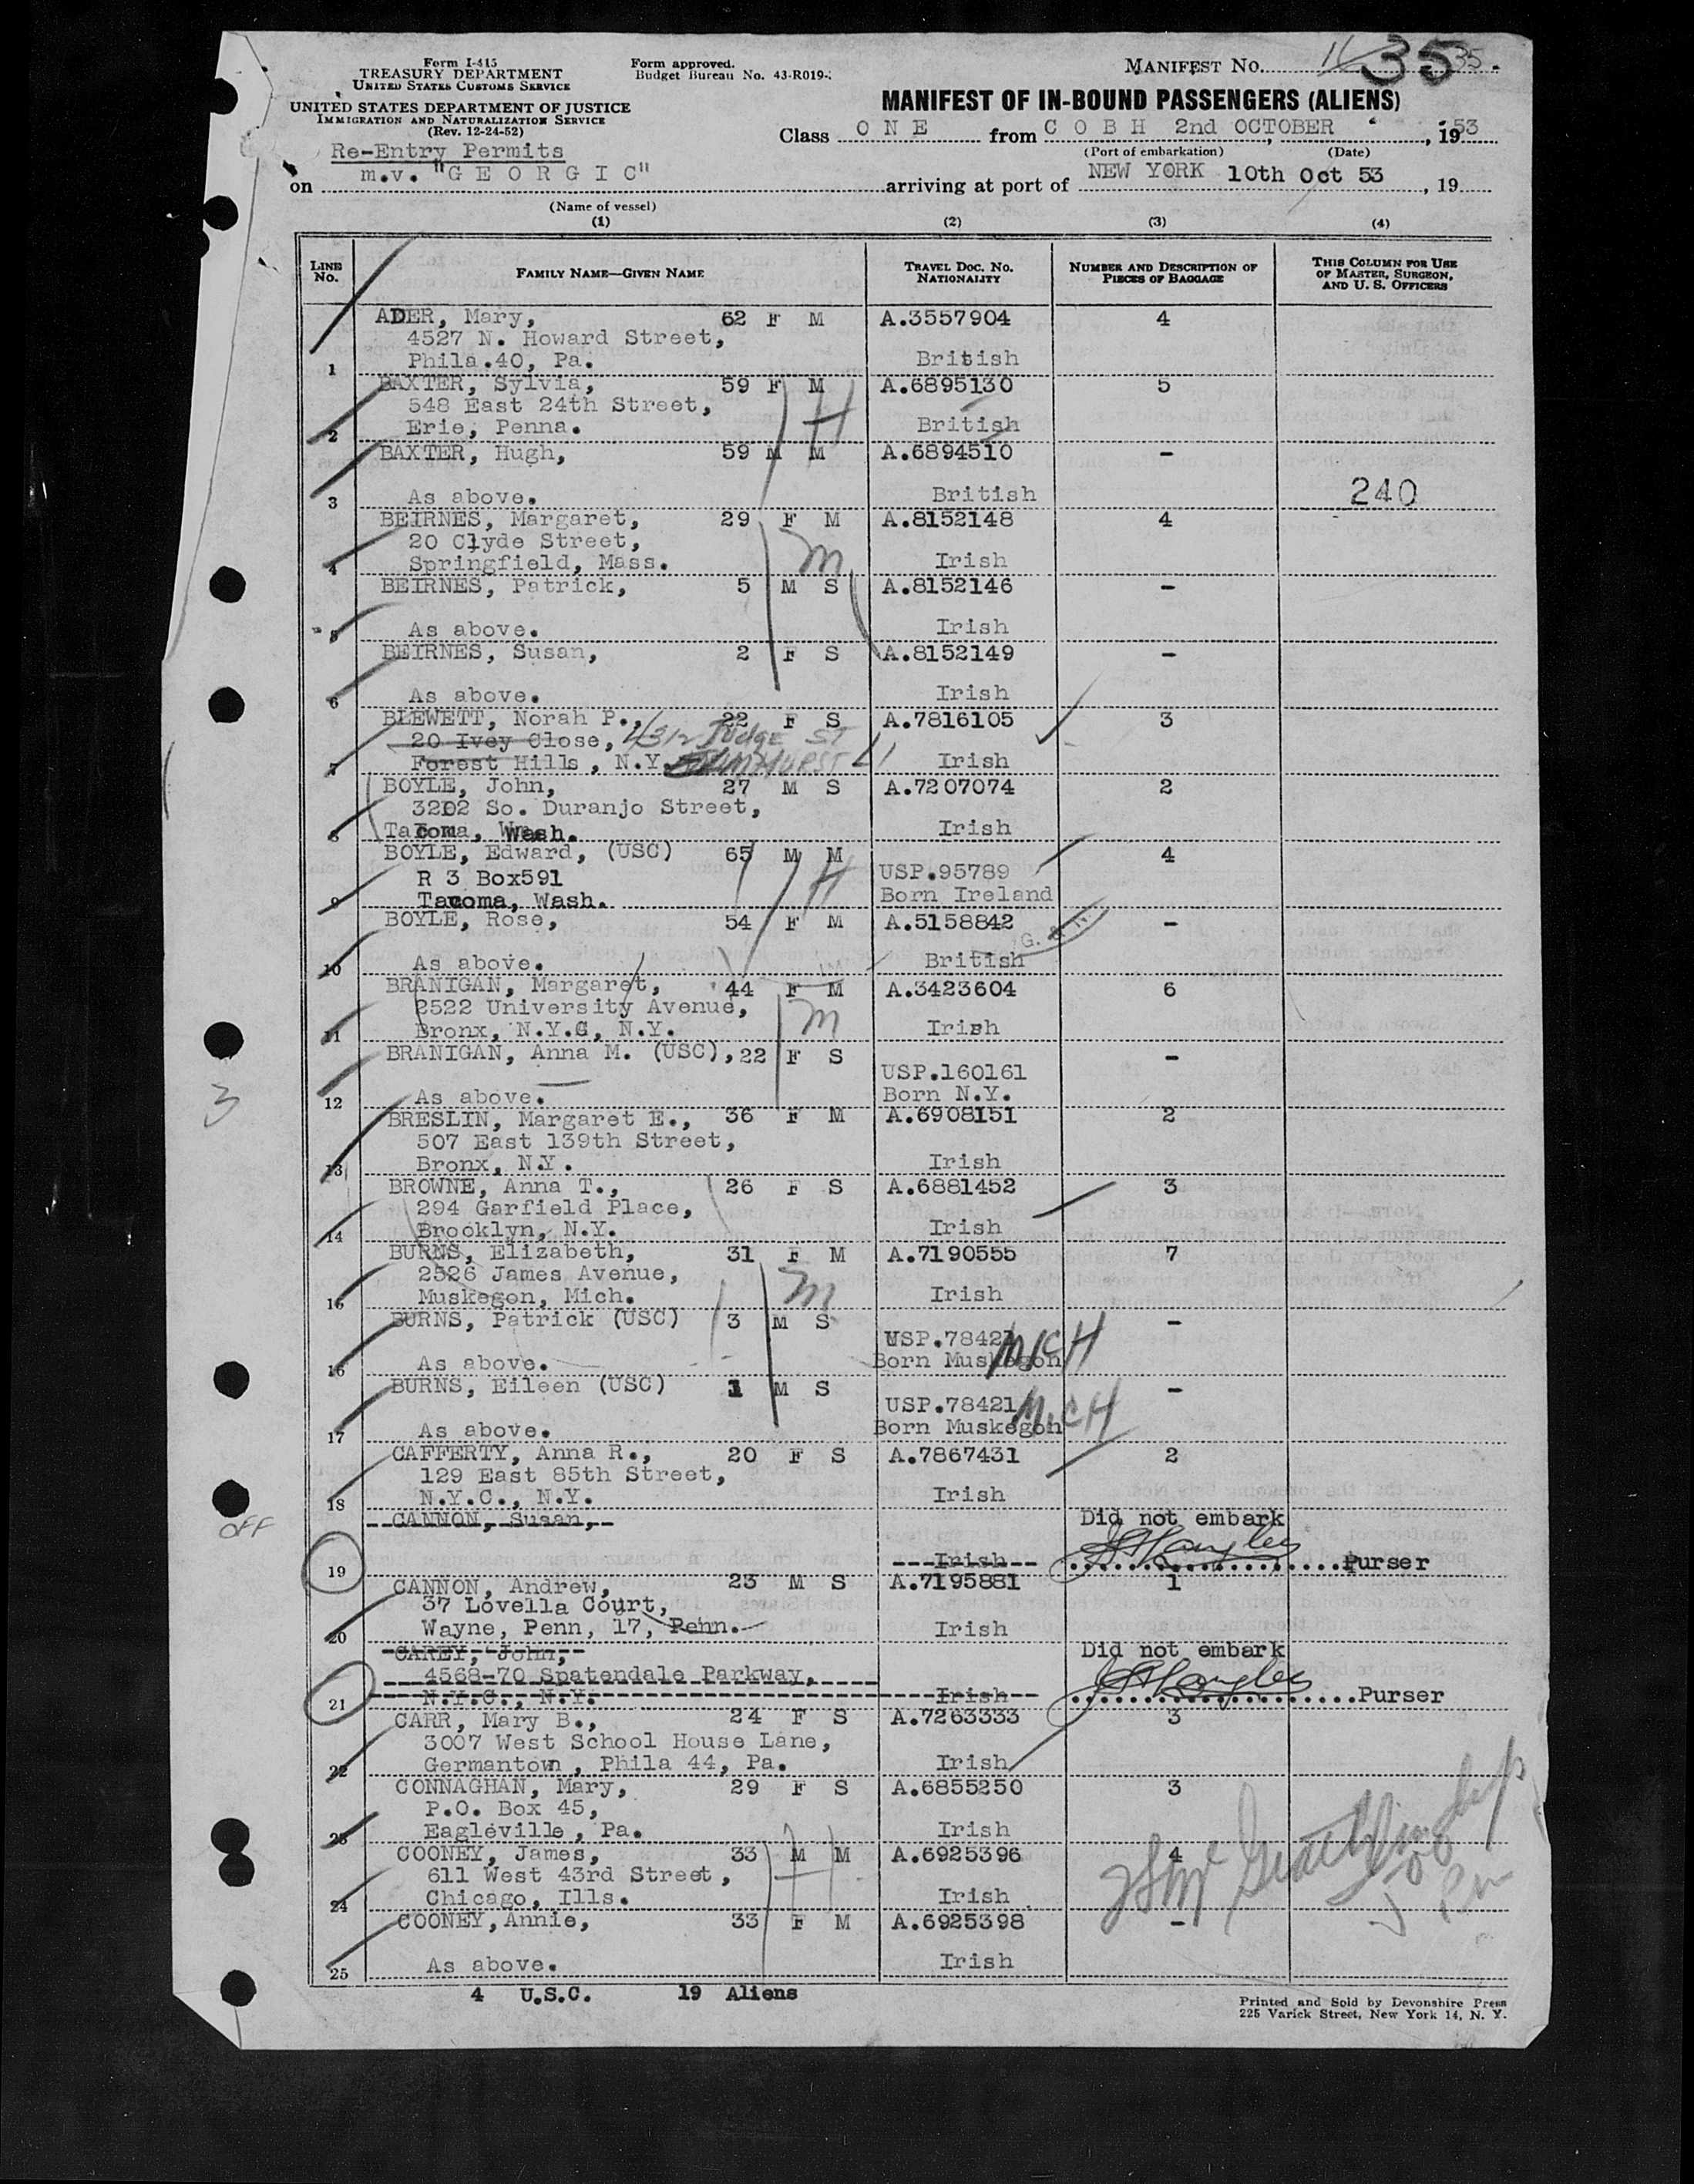 Form I-415
TREASURY DEPARTMENT
UNITED STATES CUSTOMS SERVICE
UNITED STATES DEPARTMENT OF JUSTICE
IMMIGRATION AND NATURALIZATION SERVICE
(Rev. 12-24-52)
Form approved.
Budget Bureau No. 43-R019-
MANIFEST NO. 35
MANIFEST OF IN-BOUND PASSENGERS (ALIENS)
Class O N E from C O B H 2nd OCTOBER, 1953
(Port of embarkation) (Date)
Re-Entry Permits
on m.v. "G E O R G I C" arriving at port of NEW YORK 10th Oct 53, 19
(Name of vessel)
(1) (2) (3) (4)
LINE No. FAMILY NAME—GIVEN NAME TRAVEL DOC. NO. NATIONALITY NUMBER AND DESCRIPTION OF PIECES OF BAGGAGE THIS COLUMN FOR USE OF MASTER, SURGEON, AND U. S. OFFICERS
ADER, Mary, 62 F M A.3557904 4
4527 N. Howard Street,
1 Phila.40, Pa. British
BAXTER, Sylvia, 59 F M A.6895130 5
548 East 24th Street, H
2 Erie, Penna. British
BAXTER, Hugh, 59 M M A.6894510 -
3 As above. British 240
BEIRNES, Margaret, 29 F M A.8152148 4
20 Clyde Street, m
4 Springfield, Mass. Irish
BEIRNES, Patrick, 5 M S A.8152146 -
5 As above. Irish
BEIRNES, Susan, 2 F S A.8152149 -
6 As above. Irish
BLEWETT, Norah P., 22 F S A.7816105 3
20 Ivey Close, 4312 Judge ST
7 Forest Hills, N.Y. ELMHURST LI Irish
BOYLE, John, 27 M S A.7207074 2
3202 So. Duranjo Street,
8 Tacoma, Wash. Irish
BOYLE, Edward, (USC) 65 M M 4
R 3 Box591 H USP.95789
9 Tacoma, Wash. Born Ireland
BOYLE, Rose, 54 F M A.5158842 -
10 As above. British
BRANIGAN, Margaret, 44 F M A.3423604 6
2522 University Avenue, m
11 Bronx, N.Y.C, N.Y. Irish
BRANIGAN, Anna M. (USC), 22 F S -
USP.160161
12 As above. Born N.Y.
BRESLIN, Margaret E., 36 F M A.6908151 2
507 East 139th Street,
13 Bronx, N.Y. Irish
BROWNE, Anna T., 26 F S A.6881452 3
294 Garfield Place,
14 Brooklyn, N.Y. Irish
BURNS, Elizabeth, 31 F M A.7190555 7
2526 James Avenue, m
15 Muskegon, Mich. Irish
BURNS, Patrick (USC) 3 M S -
USP.78421
16 As above. Born Muskegon MICH
BURNS, Eileen (USC) 1 M S -
USP.78421
17 As above. Born Muskegon MICH
CAFFERTY, Anna R., 20 F S A.7867431 2
129 East 85th Street,
18 N.Y.C., N.Y. Irish
OFF
CANNON, Susan, Did not embark
19 Irish Purser
CANNON, Andrew, 23 M S A.7195881 1
37 Lovella Court,
20 Wayne, Penn, 17, Penn. Irish
CAREY, John, Did not embark
4568-70 Spatendale Parkway,
21 N.Y.C., N.Y. Irish Purser
CARR, Mary B., 24 F S A.7263333 3
3007 West School House Lane,
22 Germantown, Phila 44, Pa. Irish
CONNAGHAN, Mary, 29 F S A.6855250 3
P.O. Box 45,
23 Eagleville, Pa. Irish
COONEY, James, 33 M M A.6925396 4
611 West 43rd Street, H
24 Chicago, Ills. Irish
COONEY, Annie, 33 F M A.6925398 -
25 As above. Irish
4 U.S.C. 19 Aliens
Printed and Sold by Devonshire Press
225 Varick Street, New York 14, N. Y.
3